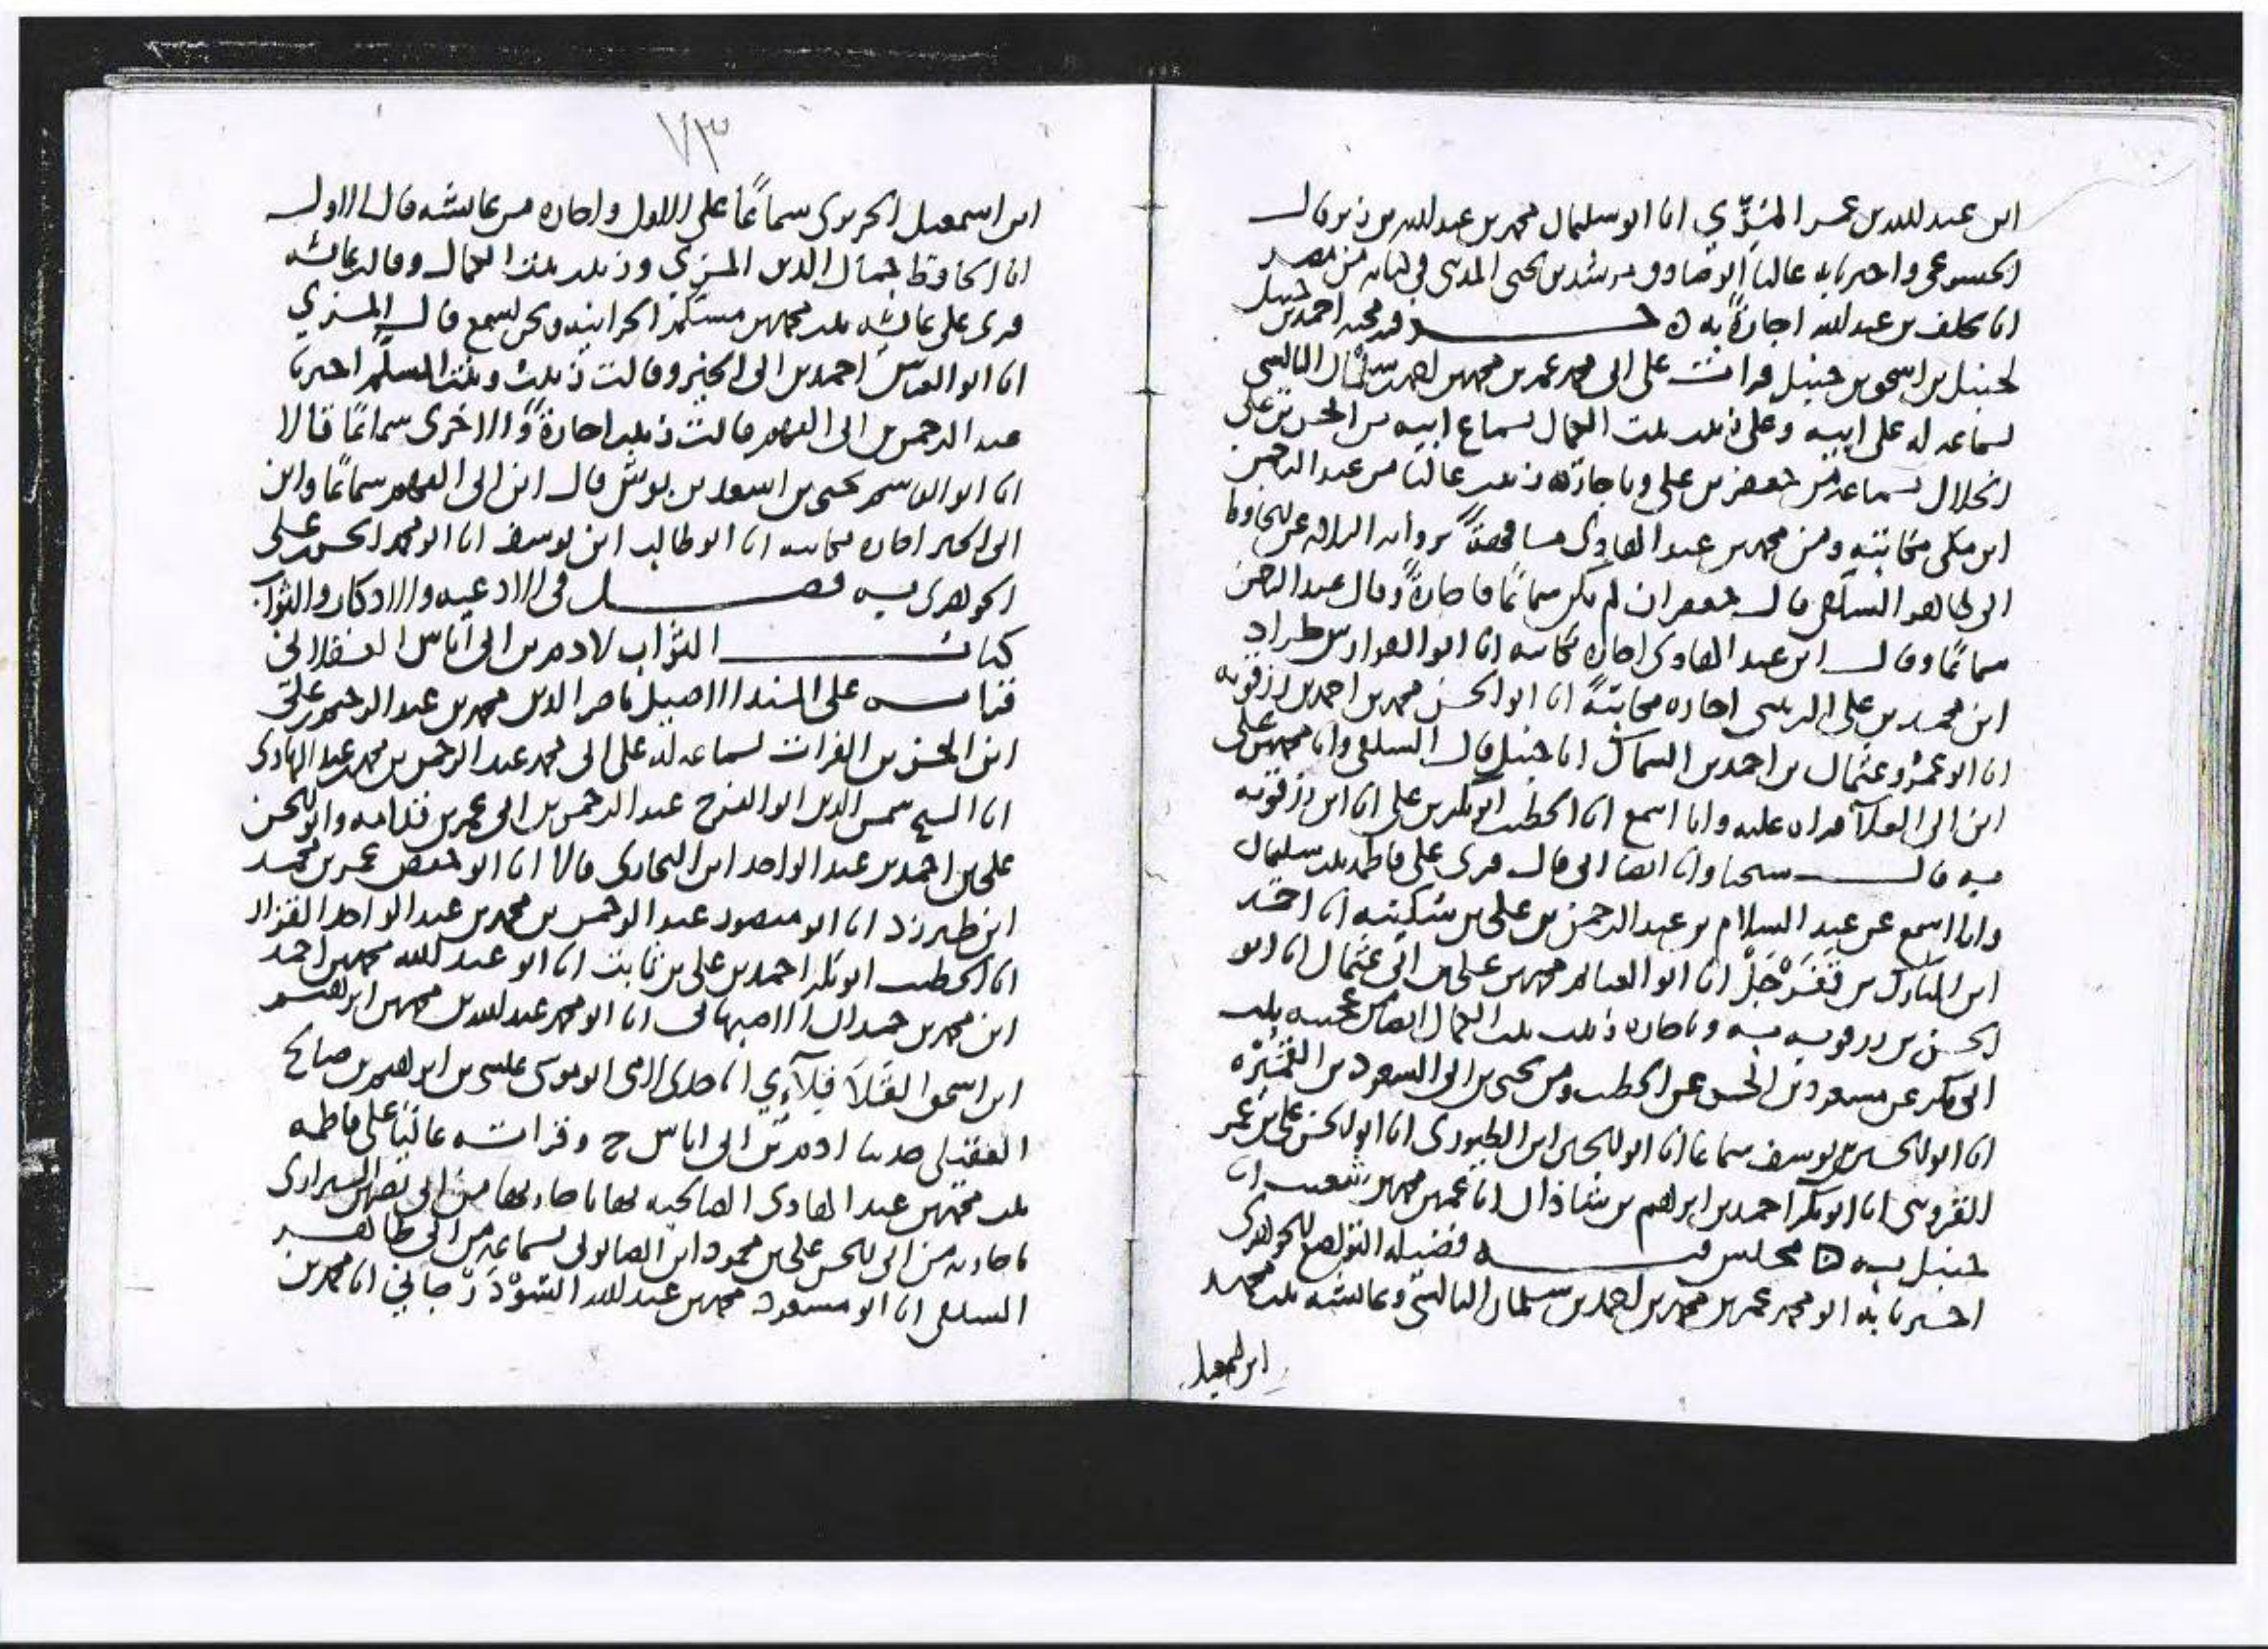 ابن عبد الله بن عمر المنزي انا ابو سليمان محمد بن عبد الله بن زبر قال
واخبرنا به عاليا ابو صادق مرشد بن يحيى المدني في كتابه من مصر
انا خلف بن عبد الله اجازةً به ه جزء فيه محنه احمد بن حنبل
لحنبل بن اسحق بن حنبل قرات على ابي محمد عمر بن محمد بن احمد بن سلمان البالسي
بسماعه له على ابيه وعلى زينب بنت الكمال بسماع ابيه من الحسن بن علي
الخلال بسماعه من جعفر بن علي وباجازة زينب عاليا من عبد الرحمن
ابن مكي مكاتبه ومن محمد بن عبد الهادي بروايه الثلاثه عن الحافظ
ابي طاهر السلفي قال جعفر ان لم يكن سماعًا فاجازةً وقال عبد الرحمن
سماعًا وقال ابن عبد الهادي اجازه مكاتبه انا ابو الفوارس طراد
ابن محمد بن علي الزينبي اجازه مكاتبةً انا ابو الحسن محمد بن احمد بن رزقويه
انا ابو عمرو عثمان بن احمد بن السماك انا حنبل قال السلفي وانا محمد بن علي
ابن ابي العلاء قراه عليه وانا اسمع انا الخطيب ابو بكر بن علي انا ابن رزقويه
به قال شيخنا وانا ايضا ابي قال قرئ على فاطمه بنت سليمان
وانا اسمع عن عبد السلام بن عبد الرحمن بن علي بن سكينه انا احمد
ابن المبارك بن نَغَرْجَلْ انا ابو الغنائم محمد بن علي بن ابي عثمان انا ابو
الحسن بن رزقويه به وباجازه زينب بنت الكمال ايضا من عجيبه بنت
ابي بكر عن مسعود بن الحسن عن الخطيب ومن يحيى بن ابي السعود بن القُمَيْرَه
انا ابو الحسين بن يوسف سماعا انا ابو الحسين ابن الطيوري انا ابو الحسن علي بن عمر
القزويني انا ابو بكر احمد بن ابراهيم بن شاذان انا عمر بن محمد بن شعيب انا
حنبل به ه مجلس فيه فضيله التواضع للجوهري
اخبرنا به ابو محمد عمر بن محمد بن احمد بن سلمان البالسي وعائشه بنت محمد
ابن اسمعيل
٧٣
ابن اسمعيل الحريري سماعًا على الاول واجازه من عائشه قال الاول
انا الحافظ جمال الدين المزي وزينب بنت الكمال وقالت عائشه
قرئ على عائشه بنت محمد بن مسلم الحرانيه ونحن نسمع قال المزي
انا ابو العباس احمد بن ابي الخير وقالت زينب وبنت المسلم اخبرنا
عبد الرحمن بن ابي الفهم قالت زينب اجازةً والاخرى سماعًا قالا
انا ابو القاسم يحيى بن اسعد بن بوش قال ابن ابي الفهم سماعًا وابن
ابي الخير اجازه مكاتبه انا ابو طالب ابن يوسف انا ابو محمد الحسن بن علي
الجوهري به فصل في الادعيه والاذكار والثواب
كتاب الثواب لادم بن ابي اياس العسقلاني
قراته على المسند الاصيل ناصر الدين محمد بن عبد الرحيم بن علي
ابن الحسن بن الفرات بسماعه له على ابي محمد عبد الرحمن بن محمد بن عبد الهادي
انا الشيخ شمس الدين ابو الفرج عبد الرحمن بن ابي عمر بن قدامه وابو الحسن
علي بن احمد بن عبد الواحد ابن البخاري قالا انا ابو حفص عمر بن محمد
ابن طبرزد انا ابو منصور عبد الرحمن بن محمد بن عبد الواحد القزاز
انا الخطيب ابو بكر احمد بن علي بن ثابت انا ابو عبد الله محمد بن احمد
ابن محمد بن حمدان الاصبهاني انا ابو محمد عبد الله بن محمد بن ابراهيم
ابن اسحق انا جدي لامي ابو موسى عيسى بن ابراهيم بن صالح
العقيلي حدثنا ادم بن ابي اياس ح وقراته عاليًا على فاطمه
بنت محمد بن عبد الهادي الصالحيه بها باجازتها من ابي نصر بن الشيرازي
باجازته من ابي الحسن علي بن محمود ابن الصابوني بسماعه من ابي طاهر
السلفي انا ابو مسعود محمد بن عبد الله السُوْذَرْجاني انا محمد بن